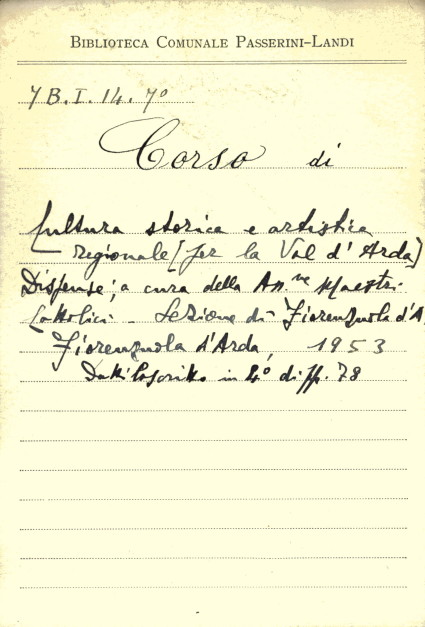 BIBLIOTECA COMUNALE PASSERINI-LANDI
7 B.I. 14. 7º
Corso di
Cultura storica e artistica
regionale (per la Val d'Arda)
Dispense, a cura della Ass.ne Maestri
Cattolici - Sezione di Fiorenzuola d'A.
Fiorenzuola d'Arda, 1953
Dattiloscritto in 4º di pp. 78